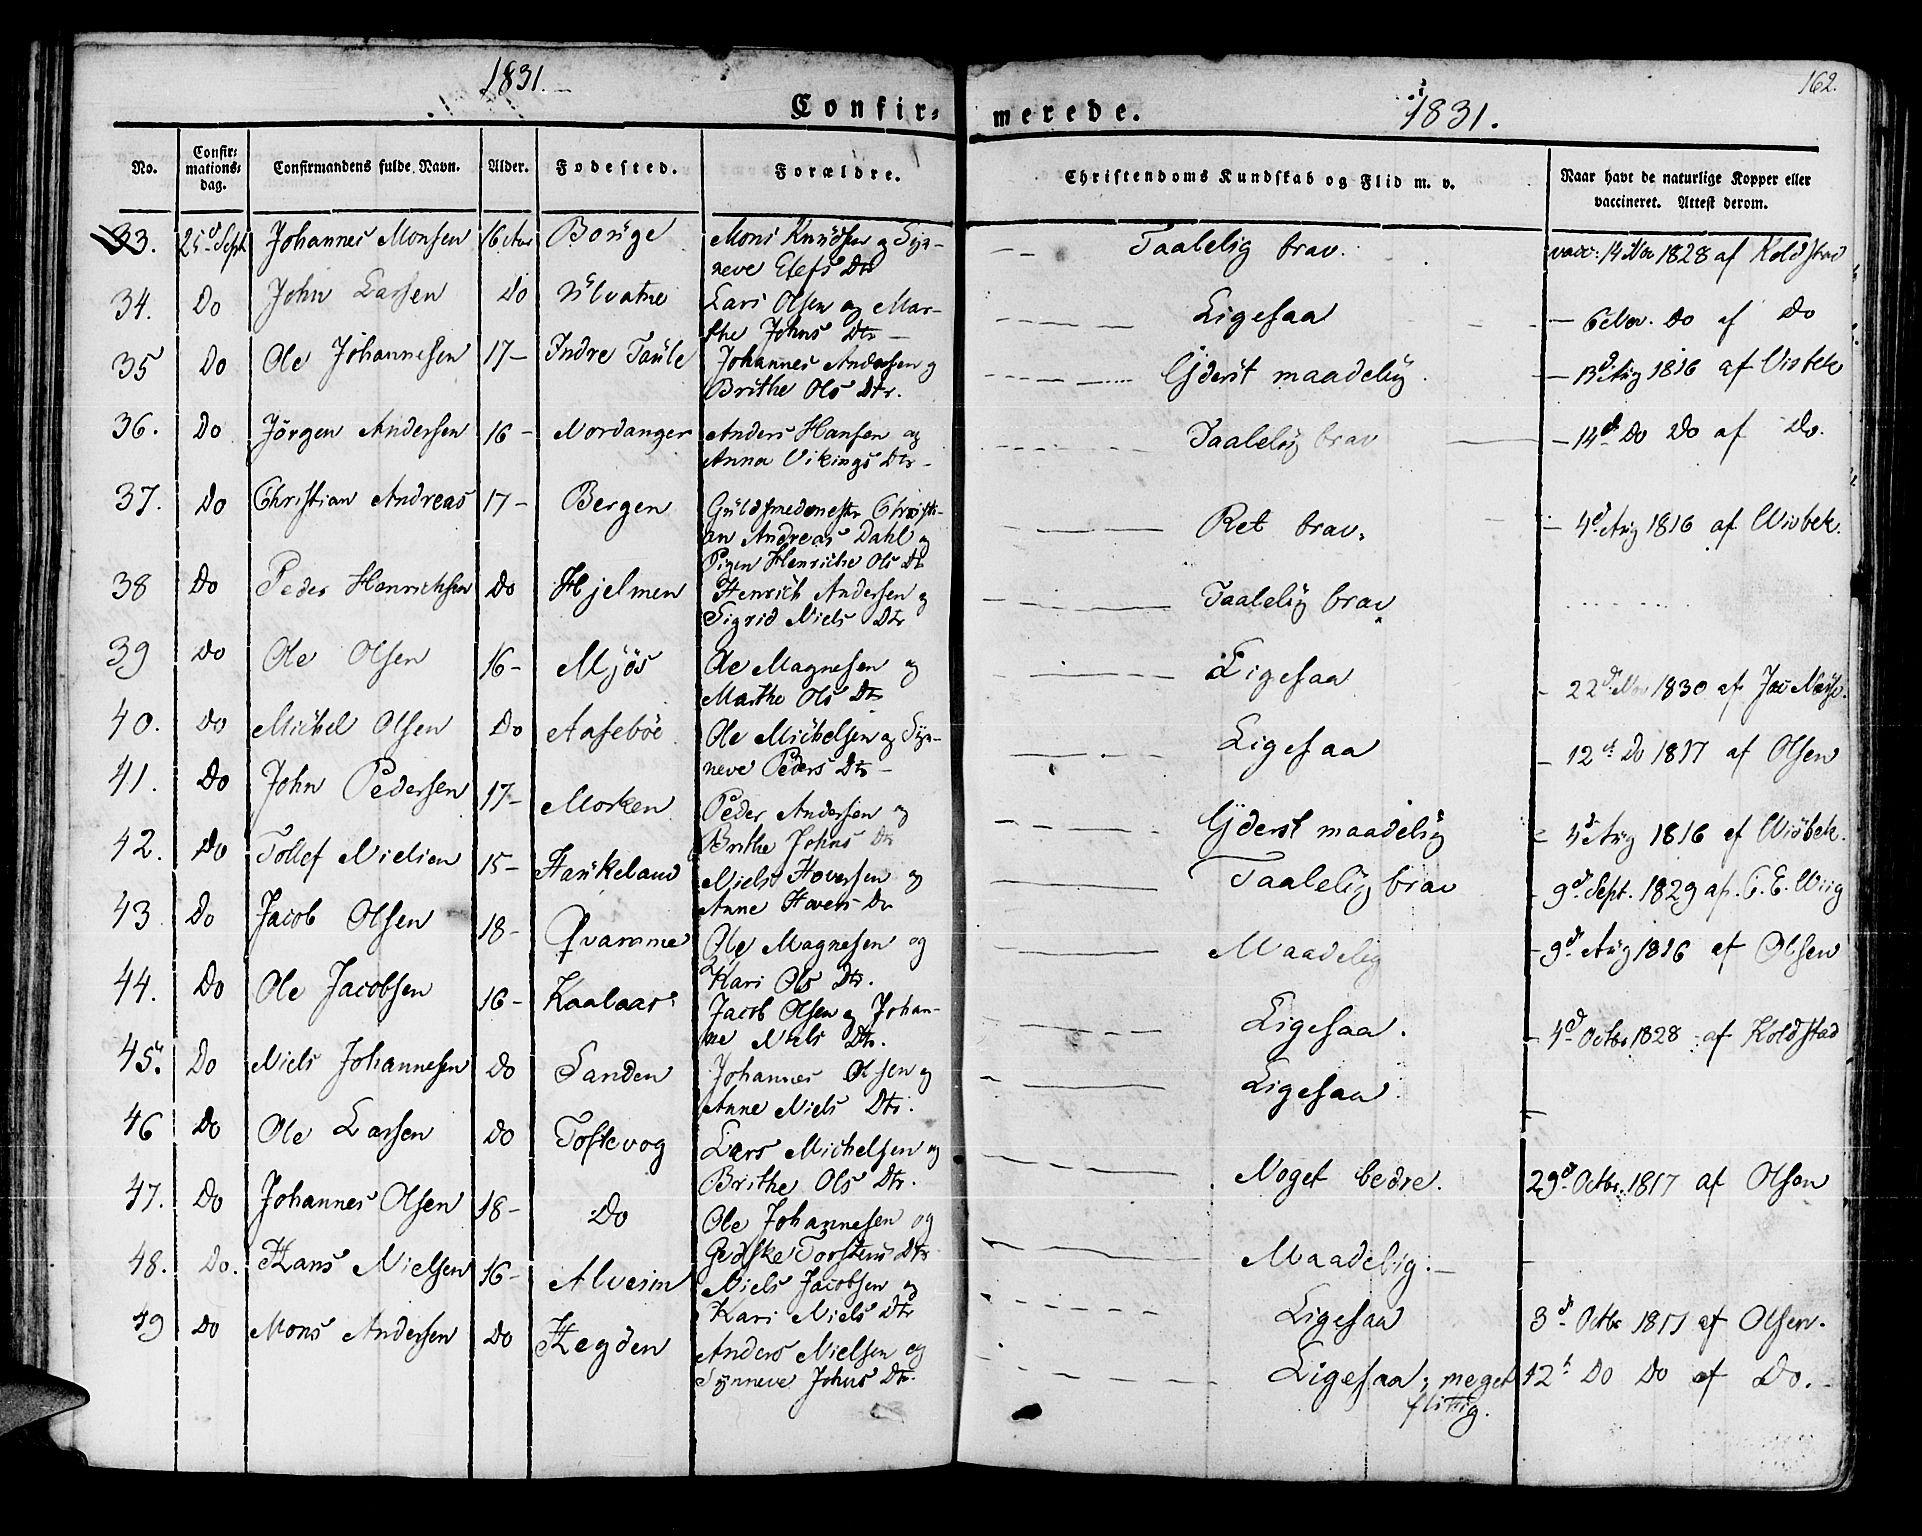 1831.
162.
Confir=
merede.
1831.
No. Confir=mations=dag. Confirmandens fulde Navn. Alder. Fødested. Forældre. Christendoms Kundskab og Flid m. v. Naar havt de naturlige Kopper eller vaccineret. Attest derom.
33. 25d Sept Johannes Monsen 16 Boüge Mons Knüdsen og Syn- Taalelig brav. vacc: 14 Nov 1828 af Koldstad
neve Elefs Dtr
34. Do John Larsen Do Ulvatne Lars Olsen og Mar- Ligesaa 6 Nov. Do af Do
the Johns Dtr
35 Do Ole Johannesen 17 - Indre Taüle Johannes Andersen og Yderst maadelig. 13d Aug 1816 af Visbek
Brithe Ols Dtr.
36. Do Jörgen Andersen 16 - Nordanger Anders Hansen og Taalelig brav - 14d Do Do af Do.
Anna Vikings Dtr
37. Do Christian Andreas 17 - Bergen Güldsmedmester Christi- Ret brav. - 4d Aug 1816 af Wisbek.
an Andreas Dahl og
Pigen Henriche Ols Dtr
38 Do Peder Henrichsen Do Hjelmen Henrich Andersen og Taalelig brav
Sigrid Niels Dtr
39 Do Ole Olsen 16 - Mjös Ole Magnesen og Ligesaa - 22d Nov 1830 af Jac
Marthe Ols Dtr
40. Do Michel Olsen Do Aaseböe Ole Michelsen og Syn- Ligesaa - 12d Do 1817 af Olsen
neve Peders Dtr
41. Do John Pedersen 17 - Morken Peder Andersen og Yderst maadelig - 4d Aug 1816 af Wisbek.
Brithe Johns Dtr
42. Do Tollef Nielsen 15 - Haükeland Niels Haversen og Taalelig brav - 9d Sept. 1829 af C. E. Wiig
Anne Havers Dtr
43 Do Jacob Olsen 18 - Qvamme Ole Magnesen og Maadelig - 9d Aug 1816 af Olsen
Kari Ols Dtr.
44. Do Ole Jacobsen 16 - Kaalaas Jacob Olsen og Johan- Ligesaa. - 4d Octbr 1828 af Koldstad
ne Niels Dtr.
45. Do Niels Johannesen Do Sanden Johannes Olsen og Ligesaa. -
Anne Niels Dtr.
46 Do Ole Larsen Do Toskevog Lars Michelsen og Noget bedre. 29d Octbr. 1817 af Olsen
Brithe Ols Dtr.
47. Do Johannes Olsen 18 - Do Ole Johannesen og Maadelig. -
Gjedske Torstens Dtr
48. Do. Hans Nielsen 16 - Alversm Niels Jacobsen og Ligesaa 3d Octbr 1817 af Olsen.
Kari Niels Dtr
49 Do Mons Andersen Do Hegden Anders Nielsen og Ligesaa, meget 12t Do Do af Do.
Synneve Johns Dtr. flittig.